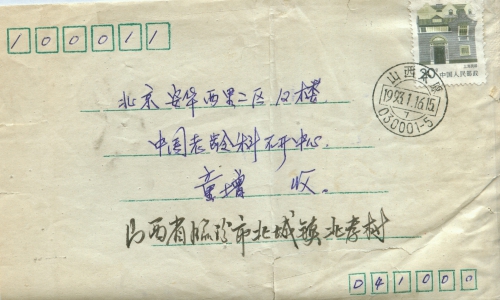 100011
20
中国人民邮政
山西太原
1993.1.16.15
7
030001-5
北京安华西里二区12楼
中国老龄科研中心
童增 收
山西省临汾市北城镇北孝村
041000